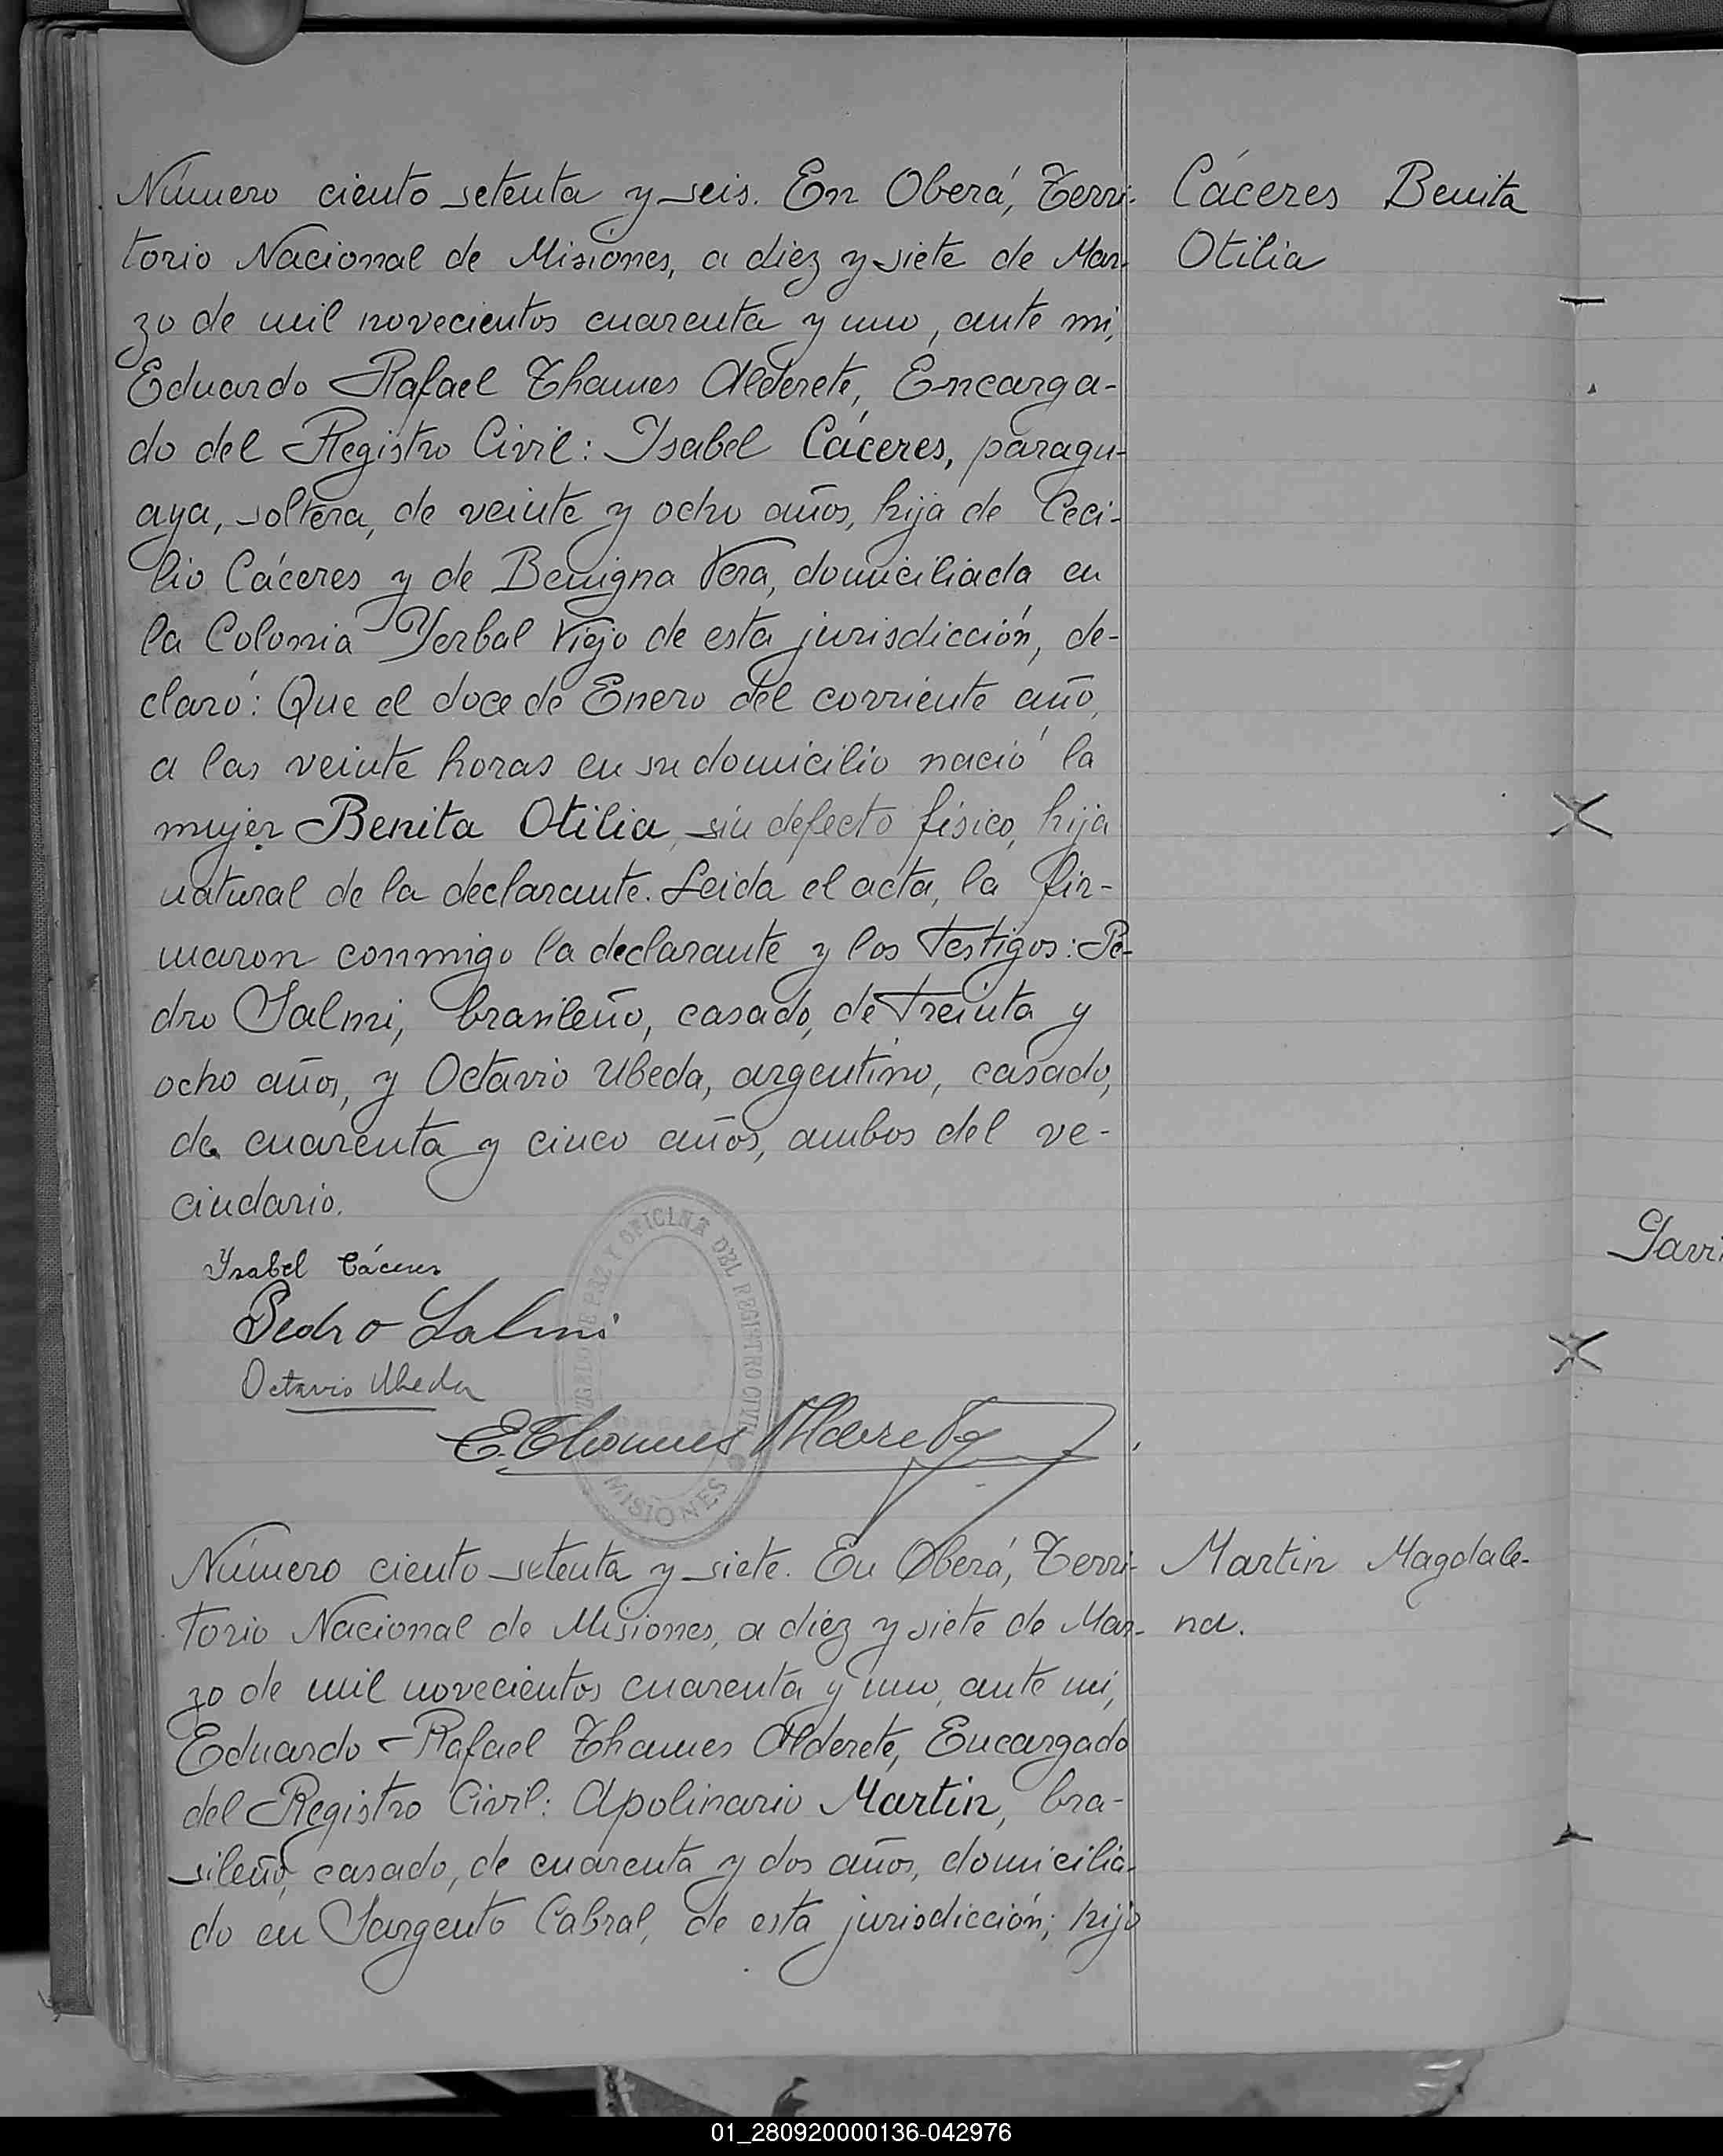 Número ciento setenta y seis. En Oberá, Terri-
torio Nacional de Misiones, a diez y siete de Mar-
zo de mil novecientos cuarenta y uno, ante mi,
Eduardo Rafael Thames Alderete, Encarga-
do del Registro Civil: Isabel Cáceres, paragu-
aya, soltera, de veinte y ocho años, hija de Ceci-
lio Cáceres y de Benigna Vera, domiciliada en
la Colonia Yerbal Viejo de esta jurisdicción, de-
claró: Que el doce de Enero del corriente año,
a las veinte horas en su domicilio nació la
mujer Benita Otilia, sin defecto físico, hija
natural de la declarante. Leida el acta, la fir-
maron conmigo la declarante y los testigos: Pe-
dro Salmi, brasileño, casado, de treinta y
ocho años, y Octavio Ubeda, argentino, casado,
de cuarenta y cinco años, ambos del ve-
cindario.
Cáceres Benita
Otilia
Isabel Cáceres
Pedro Salmi
Octavio Ubeda
E. Thames Alderete
JUZGADO DE PAZ Y OFICINA DEL REGISTRO CIVIL
MISIONES
Número ciento setenta y siete. En Oberá, Terri-
torio Nacional de Misiones, a diez y siete de Mar-
zo de mil novecientos cuarenta y uno, ante mi,
Eduardo Rafael Thames Alderete, Encargado
del Registro Civil: Apolinario Martin, bra-
sileño, casado, de cuarenta y dos años, domicilia-
do en Sargento Cabral, de esta jurisdicción; hijo
Martin Magdale-
na.
01_280920000136-042976